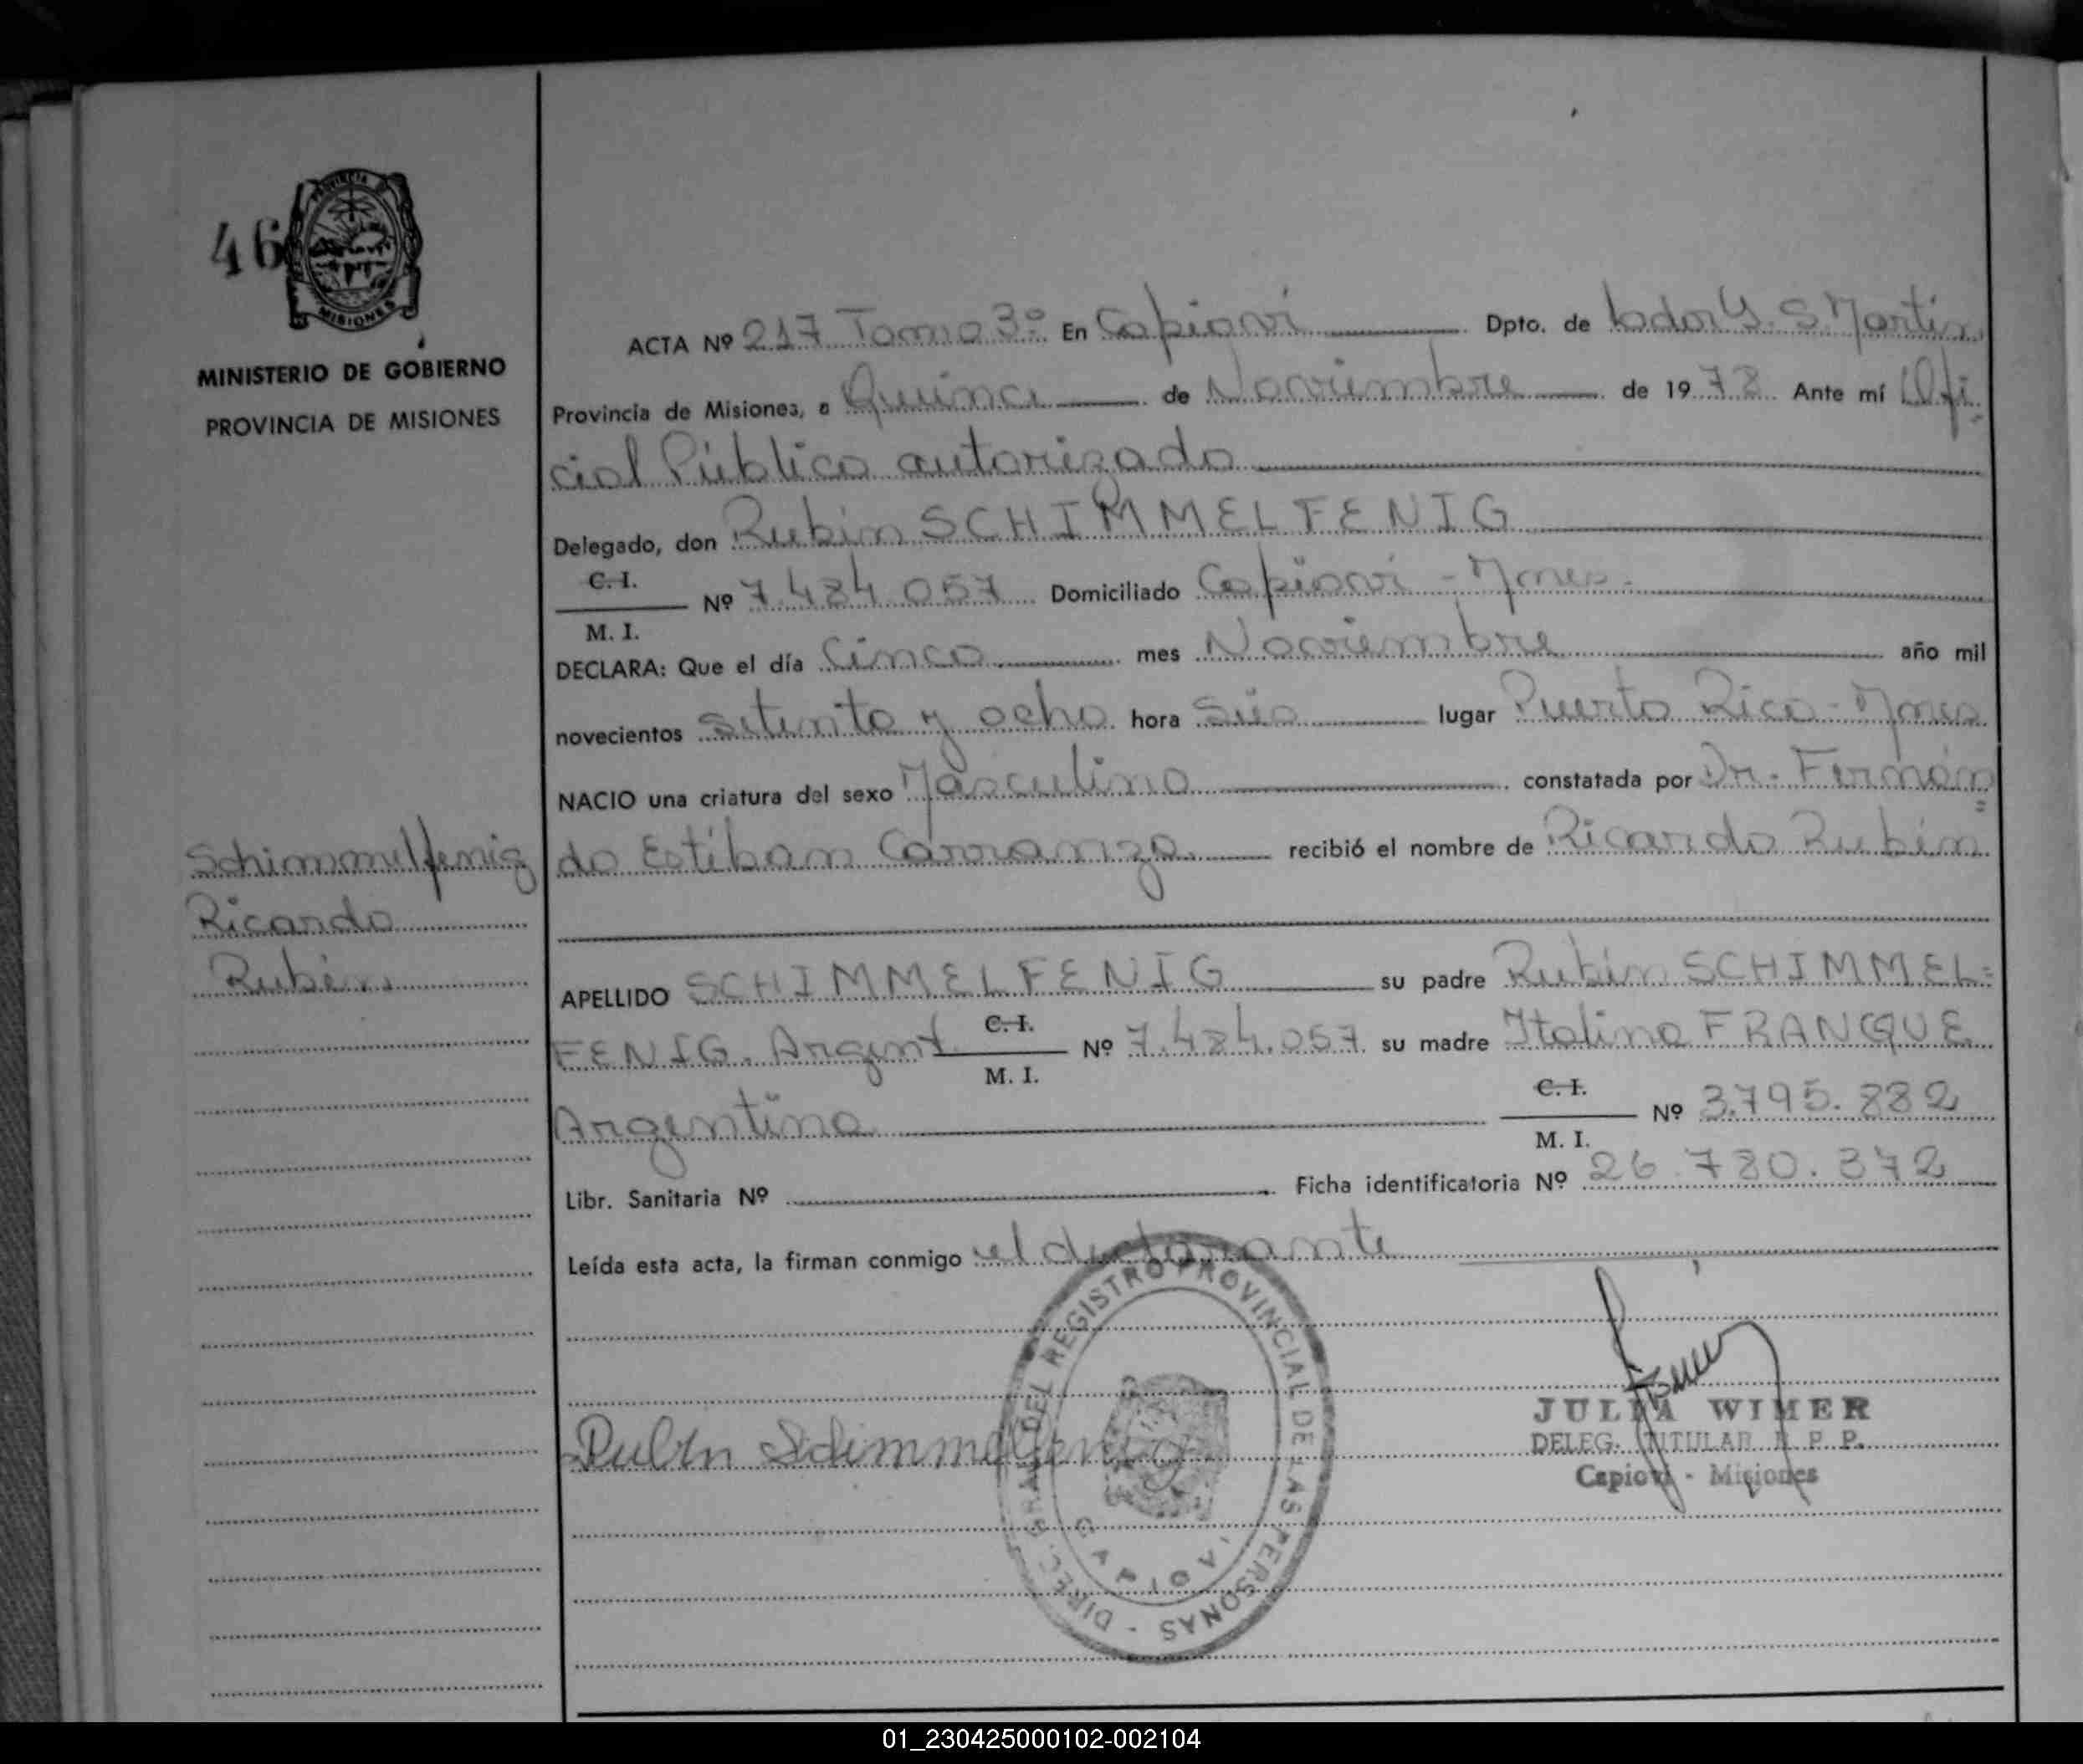 46
PROVINCIA DE
MISIONES
MINISTERIO DE GOBIERNO
PROVINCIA DE MISIONES
Schimmelfenig
Ricardo
Rubén
ACTA Nº 217 Tomo 3º En Capioví Dpto. de Ldor G. S. Martín
Provincia de Misiones, a Quince de Noviembre de 1978 Ante mí Ofi-
cial Público autorizado
Delegado, don Rubén SCHIMMELFENIG
C. I.
M. I. Nº 7.484.057 Domiciliado Capioví - Mnes.
DECLARA: Que el día Cinco mes Noviembre año mil
novecientos setenta y ocho hora Seis lugar Puerto Rico - Mnes
NACIO una criatura del sexo Masculino constatada por Dr. Fernan=
do Esteban Carranza recibió el nombre de Ricardo Rubén
APELLIDO SCHIMMELFENIG su padre Rubén SCHIMMEL=
FENIG. Argent. C. I.
M. I. Nº 7.484.057 su madre Italina FRANCQUE
Argentina C. I.
M. I. Nº 3.795.882
Libr. Sanitaria Nº Ficha identificatoria Nº 26.780.372
Leída esta acta, la firman conmigo el declarante
Rubén Schimmelfenig
DIREC. GRAL DEL REGISTRO PROVINCIAL DE LAS PERSONAS -
CAPIOVI
JULIA WIMER
DELEG. TITULAR R. P. P.
Capioví - Misiones
01_230425000102-002104